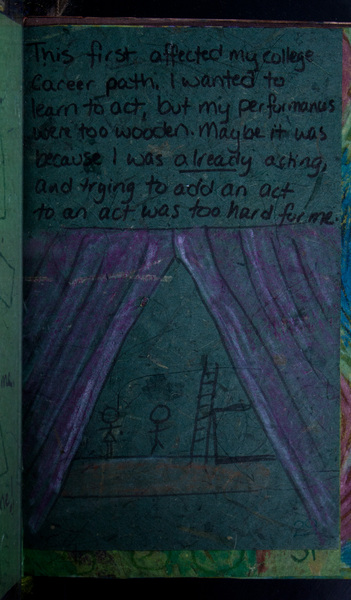 This first affected my college
Career path. I wanted to
learn to act, but my performances
were too wooden. Maybe it was
because I was already acting,
and trying to add an act
to an act was too hard for me.